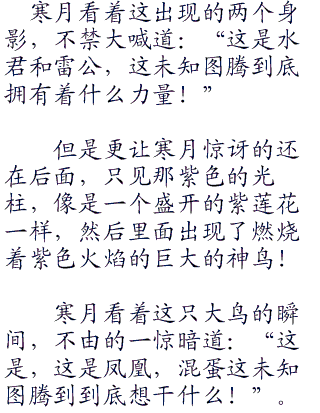 寒月看着这出现的两个身
影，不禁大喊道：“这是水
君和雷公，这未知图腾到底
拥有着什么力量！”
但是更让寒月惊讶的还
在后面，只见那紫色的光
柱，像是一个盛开的紫莲花
一样，然后里面出现了燃烧
着紫色火焰的巨大的神鸟！
寒月看着这只大鸟的瞬
间，不由的一惊暗道：“这
是，这是凤凰，混蛋这未知
图腾到到底想干什么！”。